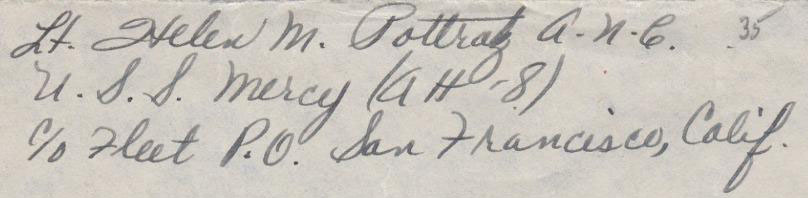 Lt. Helen M. Pottratz A.N.C. 35
U.S.S. Mercy (AH-8)
c/o Fleet P.O. San Francisco, Calif.